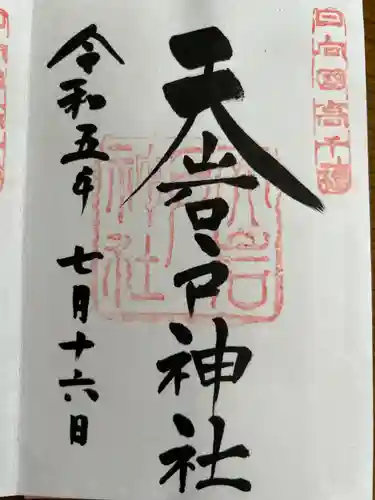 日向国高千穂
天岩戸神社
天岩戸神社
令和五年 七月十六日